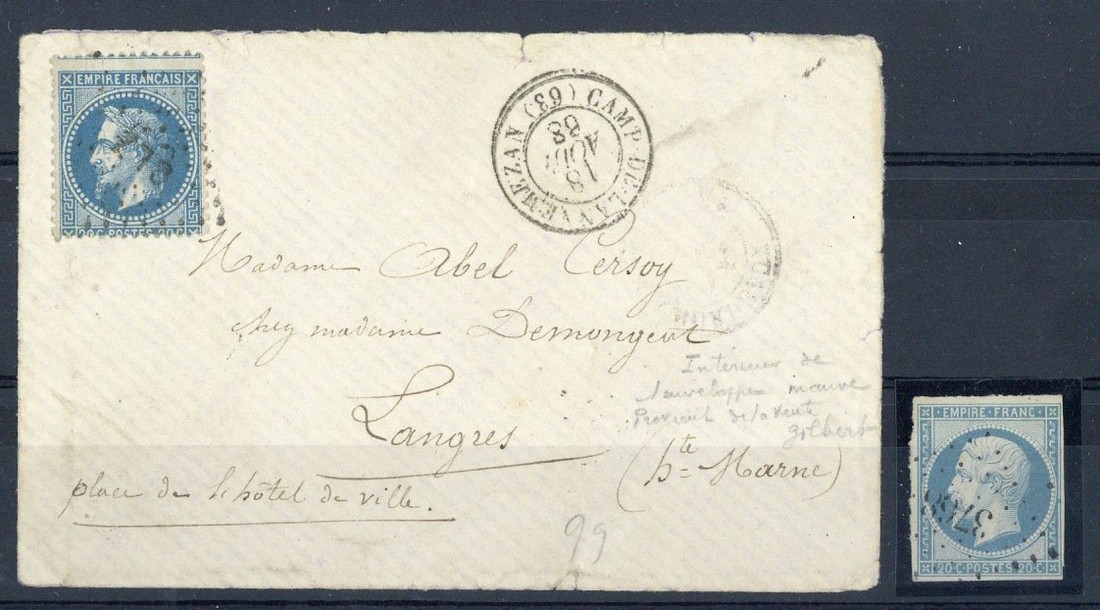 EMPIRE FRANÇAIS
20C POSTES 20C
CAMP-DE-LANNEMEZAN (63)
18
AOUT
68
Madame Abel Cersoy
chez madame Demongeot
Langres
(hte Marne)
place de l'hôtel de ville.
Interieur de
l'enveloppe mauve
Provient de la vente
Gilbert
99
EMPIRE·FRANC·
3768
20·C·POSTES·20·C·